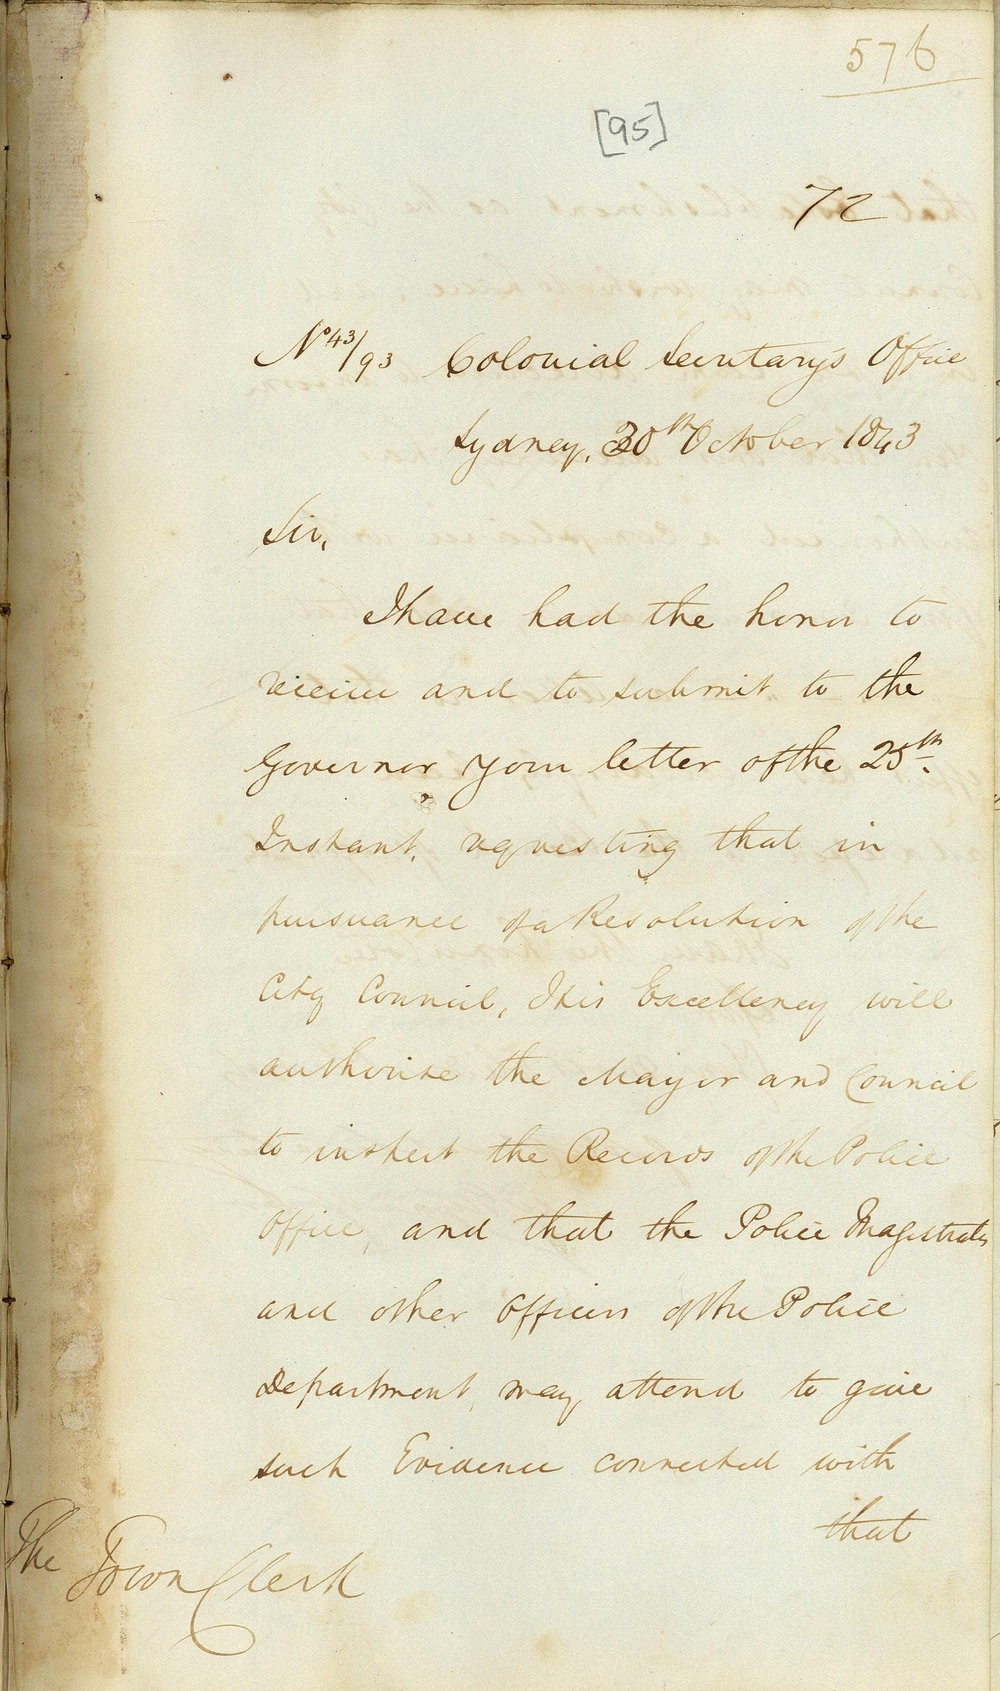 576
[95]
72
No 43/93 Colonial Secretary's Office
Sydney, 30th October 1843
Sir,
I have had the honor to
receive and to submit to the
Governor your letter of the 25th
Instant, requesting that in
pursuance of a Resolution of the
City Council, His Excellency will
authorise the Mayor and Council
to inspect the Records of the Police
Office, and that the Police Magistrates
and other Officers of the Police
Department, may attend to give
such Evidence connected with
that
The Town Clerk